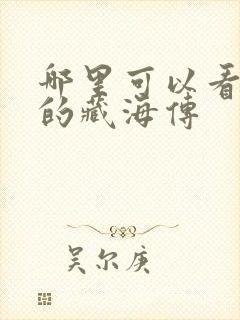 哪里可以看
的藏海傳
吴尔庚